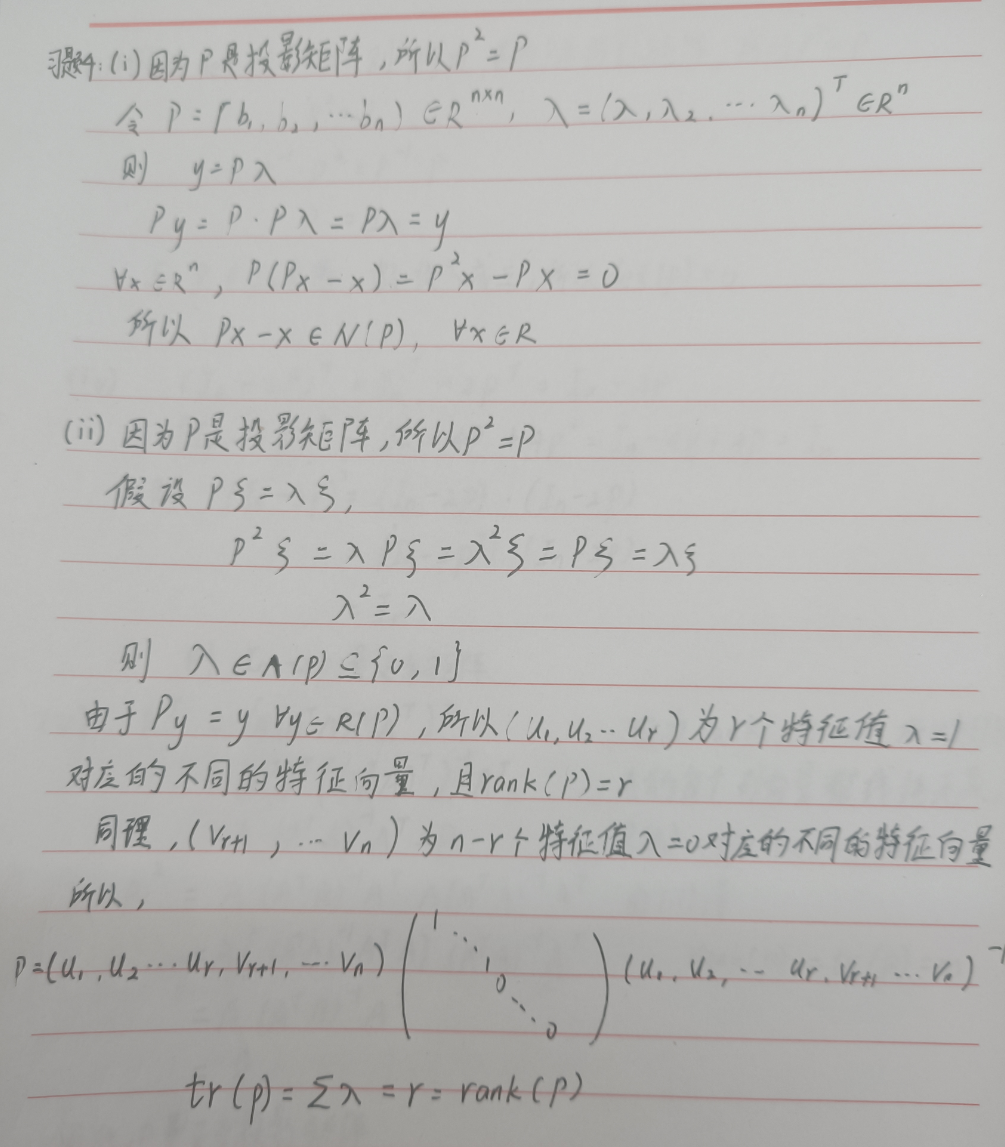 习题4:(i)因为P是投影矩阵,所以P²=P
令 P=(b₁, b₂, …bₙ) ∈Rⁿˣⁿ, λ=(λ, λ₂, … λₙ)ᵀ ∈Rⁿ
则 y=Pλ
Py = P·Pλ = Pλ = y
∀x∈Rⁿ, P(Px-x) = P²x-Px = 0
所以 Px-x∈N(P), ∀x∈R
(ii) 因为P是投影矩阵,所以P²=P
假设 Pξ=λξ,
P²ξ = λPξ = λ²ξ = Pξ = λξ
λ²=λ
则 λ∈Λ(P)⊆{0,1}
由于Py=y ∀y∈R(P),所以(u₁,u₂…uᵣ)为r个特征值λ=1
对应的不同的特征向量,且rank(P)=r
同理,(vᵣ₊₁, … vₙ)为n-r个特征值λ=0对应的不同的特征向量
所以,
P=(u₁,u₂…uᵣ,vᵣ₊₁,…vₙ) (1 ⋱ 1 0 ⋱ 0) (u₁,u₂,…uᵣ,vᵣ₊₁…vₙ)⁻¹
tr(P)=Σλ=r=rank(P)